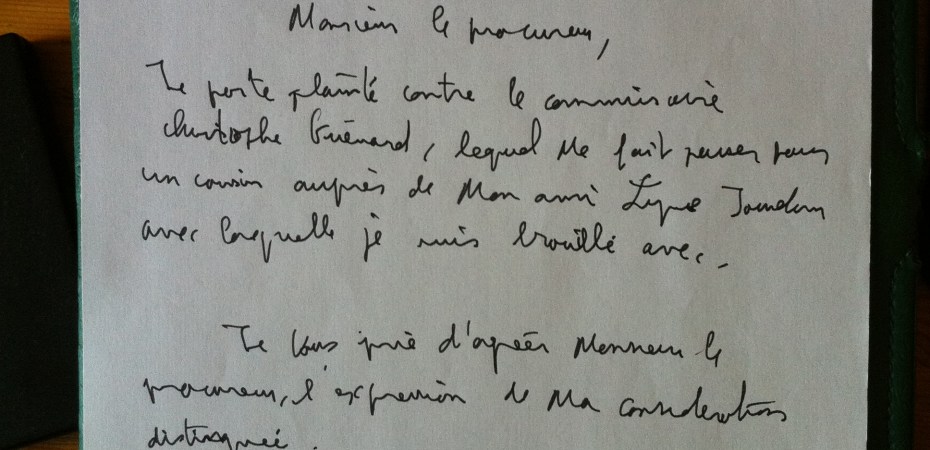 Monsieur le procureur,
Je porte plainte contre le commissaire
christophe Guénard, lequel me fait passer pour
un cousin auprès de mon ami Jourdan
avec laquelle je suis brouillé avec.
Je vous prie d'agréer Monsieur le
procureur, l'expression de ma considération
distinguée.